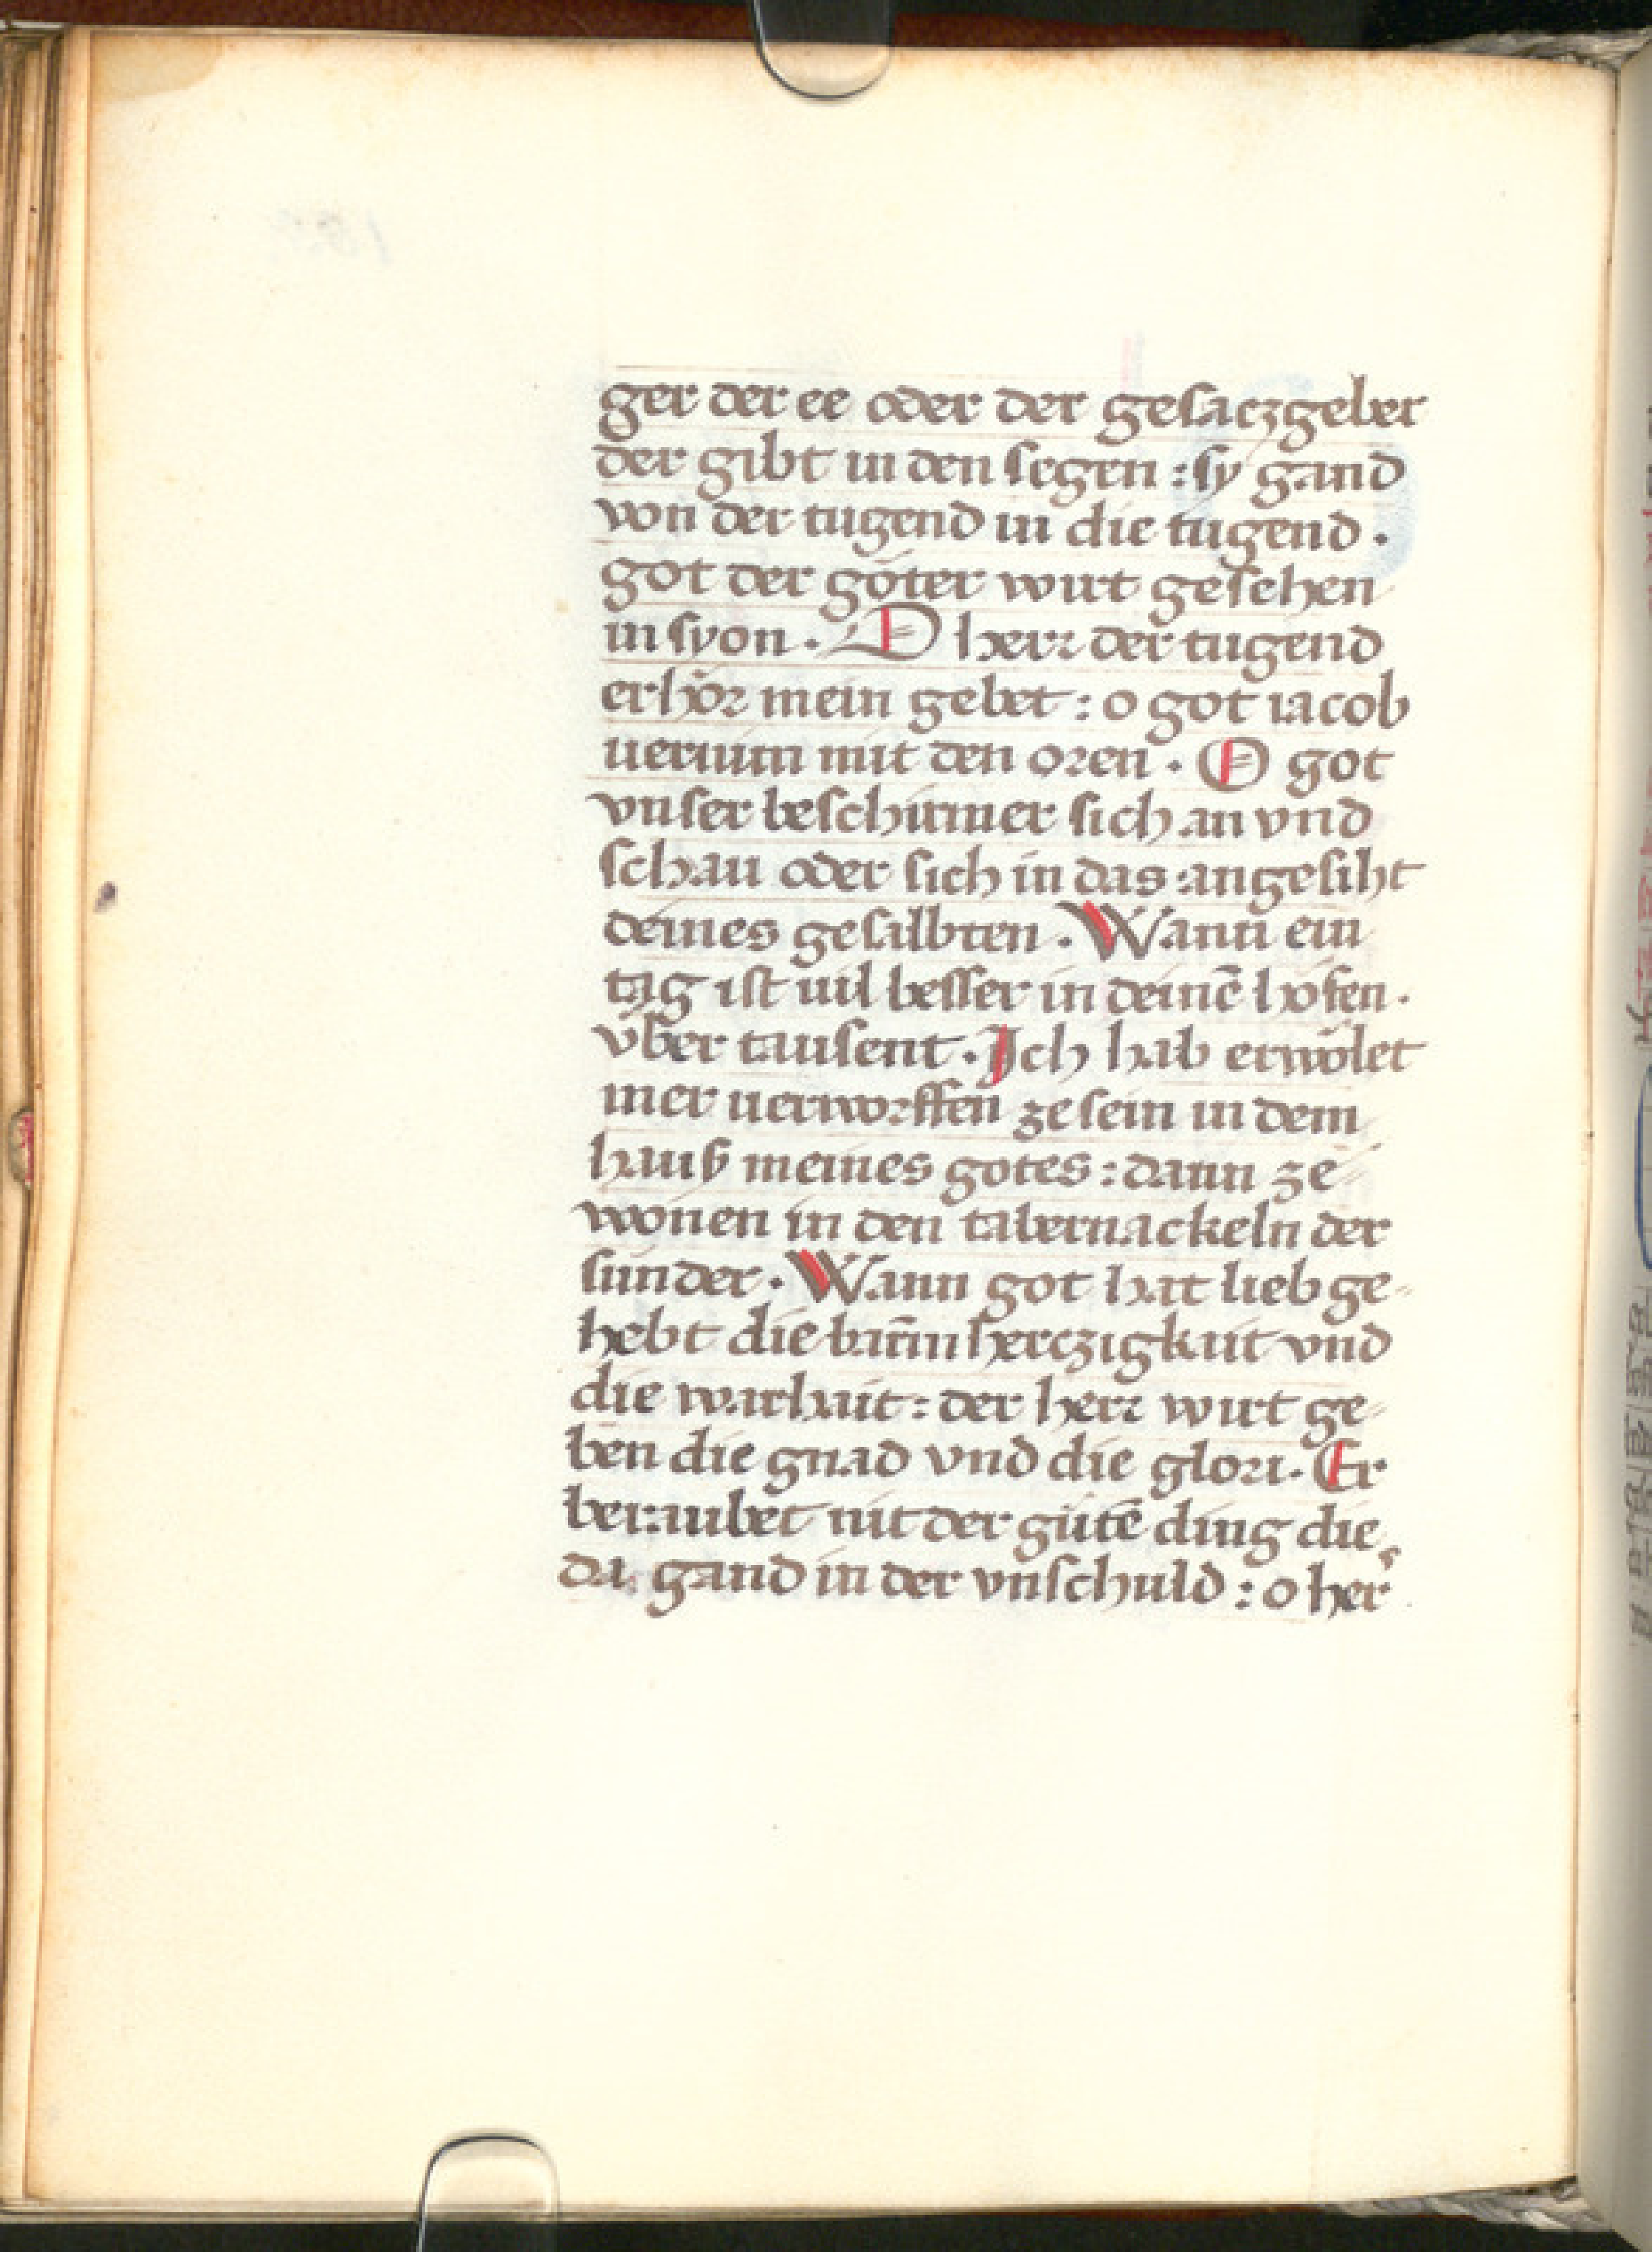 ger der ee oder der gesaczgeber
der gibt in den segen : sy gand
von der tugend in die tugend .
got der göter wirt gesehen
in syon . O herr der tugend
erhör mein gebet : o got iacob
uernim mit den oren . O got
vnser beschirmer sich an vnd
schau oder sich in das angesiht
deines gesalbten . Wann ein
tag ist uil besser in deinē höfen .
über tausent . Ich hab erwölet
mer uerworffen ze sein in dem
hauß meines gotes : dann ze
wonen in den tabernackeln der
sünder . Wann got hat lieb ge-
hebt die barm̄herczigkait vnd
die warhait : der herr wirt ge-
ben die gnad vnd die glori . Er
beraubet nit der gůtē ding die
da gand in der vnschuld : o her